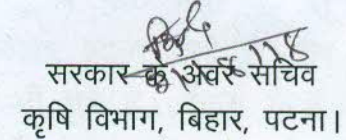 सरकार के अवर सचिव
कृषि विभाग, बिहार, पटना।